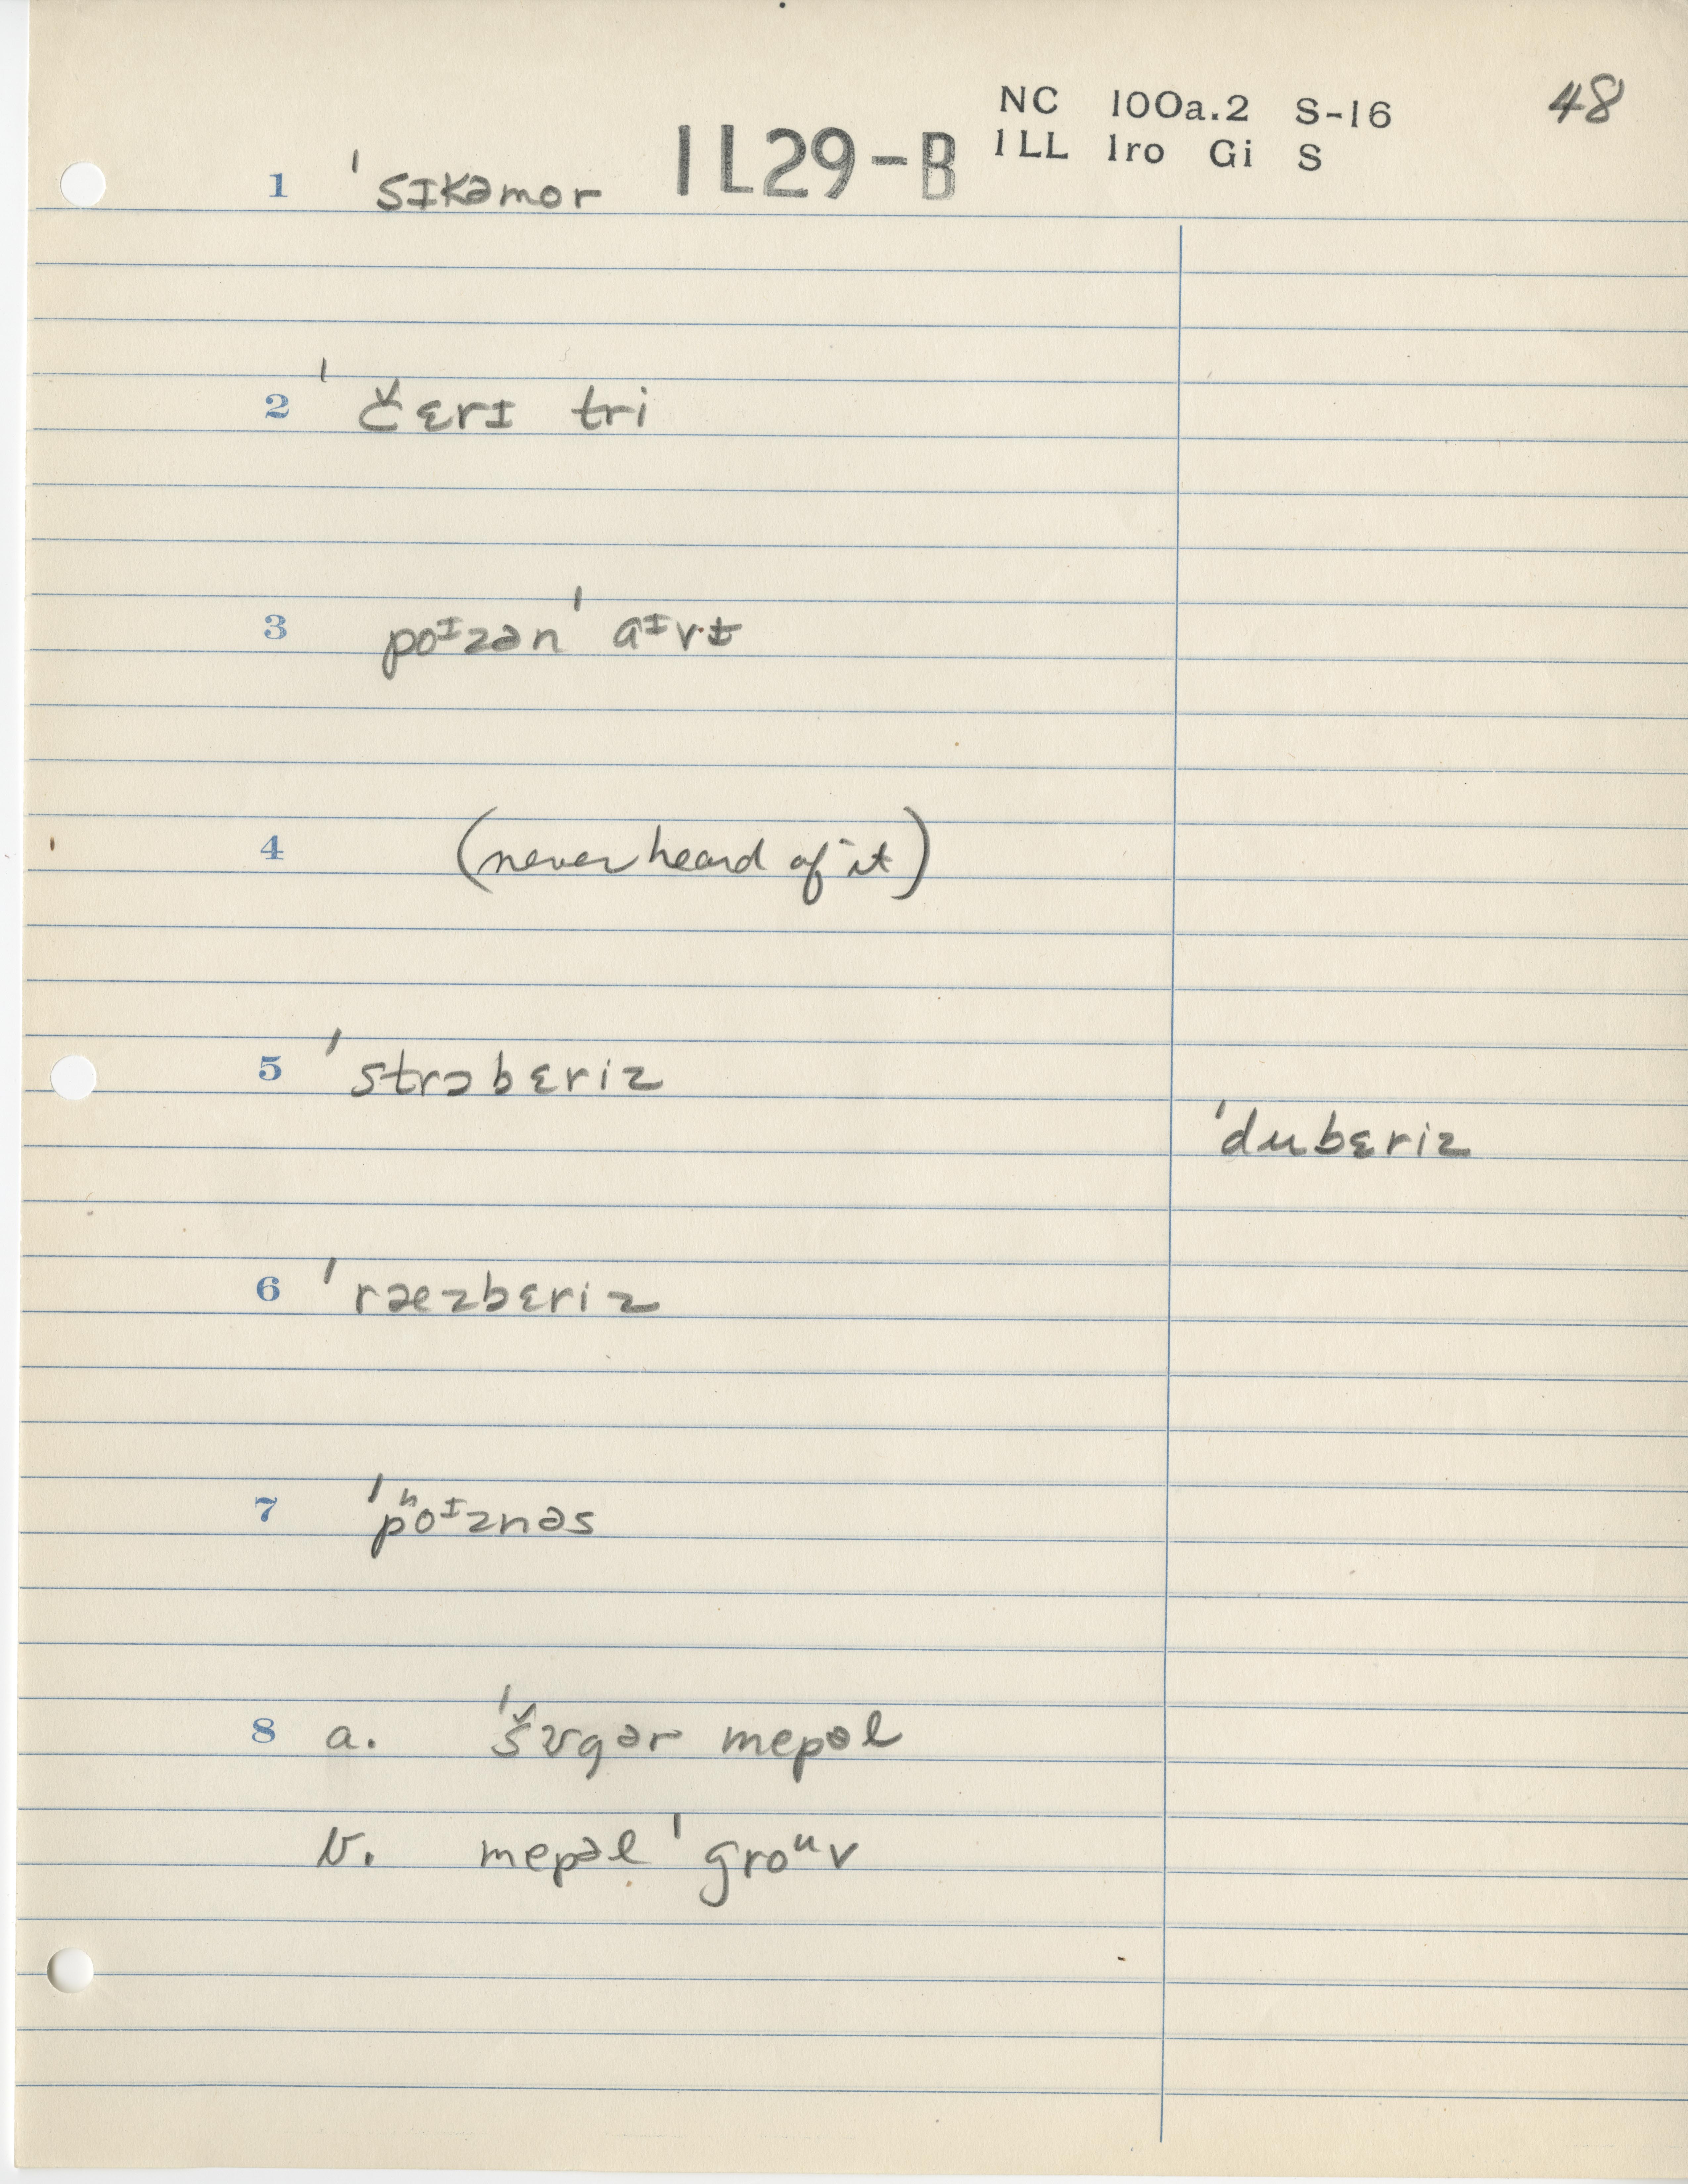 NC 100a.2 S-16
48
1LL 1ro Gi S
1L29-B
1 ˈsɪkəmor
2 ˈčɛrɪ tri
3 poᶦzənˈ aᶦvɨ
4 (never heard of it)
5 ˈstrɔbɛriz
ˈdubɛriz
6 ˈræzbɛriz
7 ˈpʰoᶦznəs
8 a. ˈšʊgər mepəl
b. mepəlˈ groᵘv